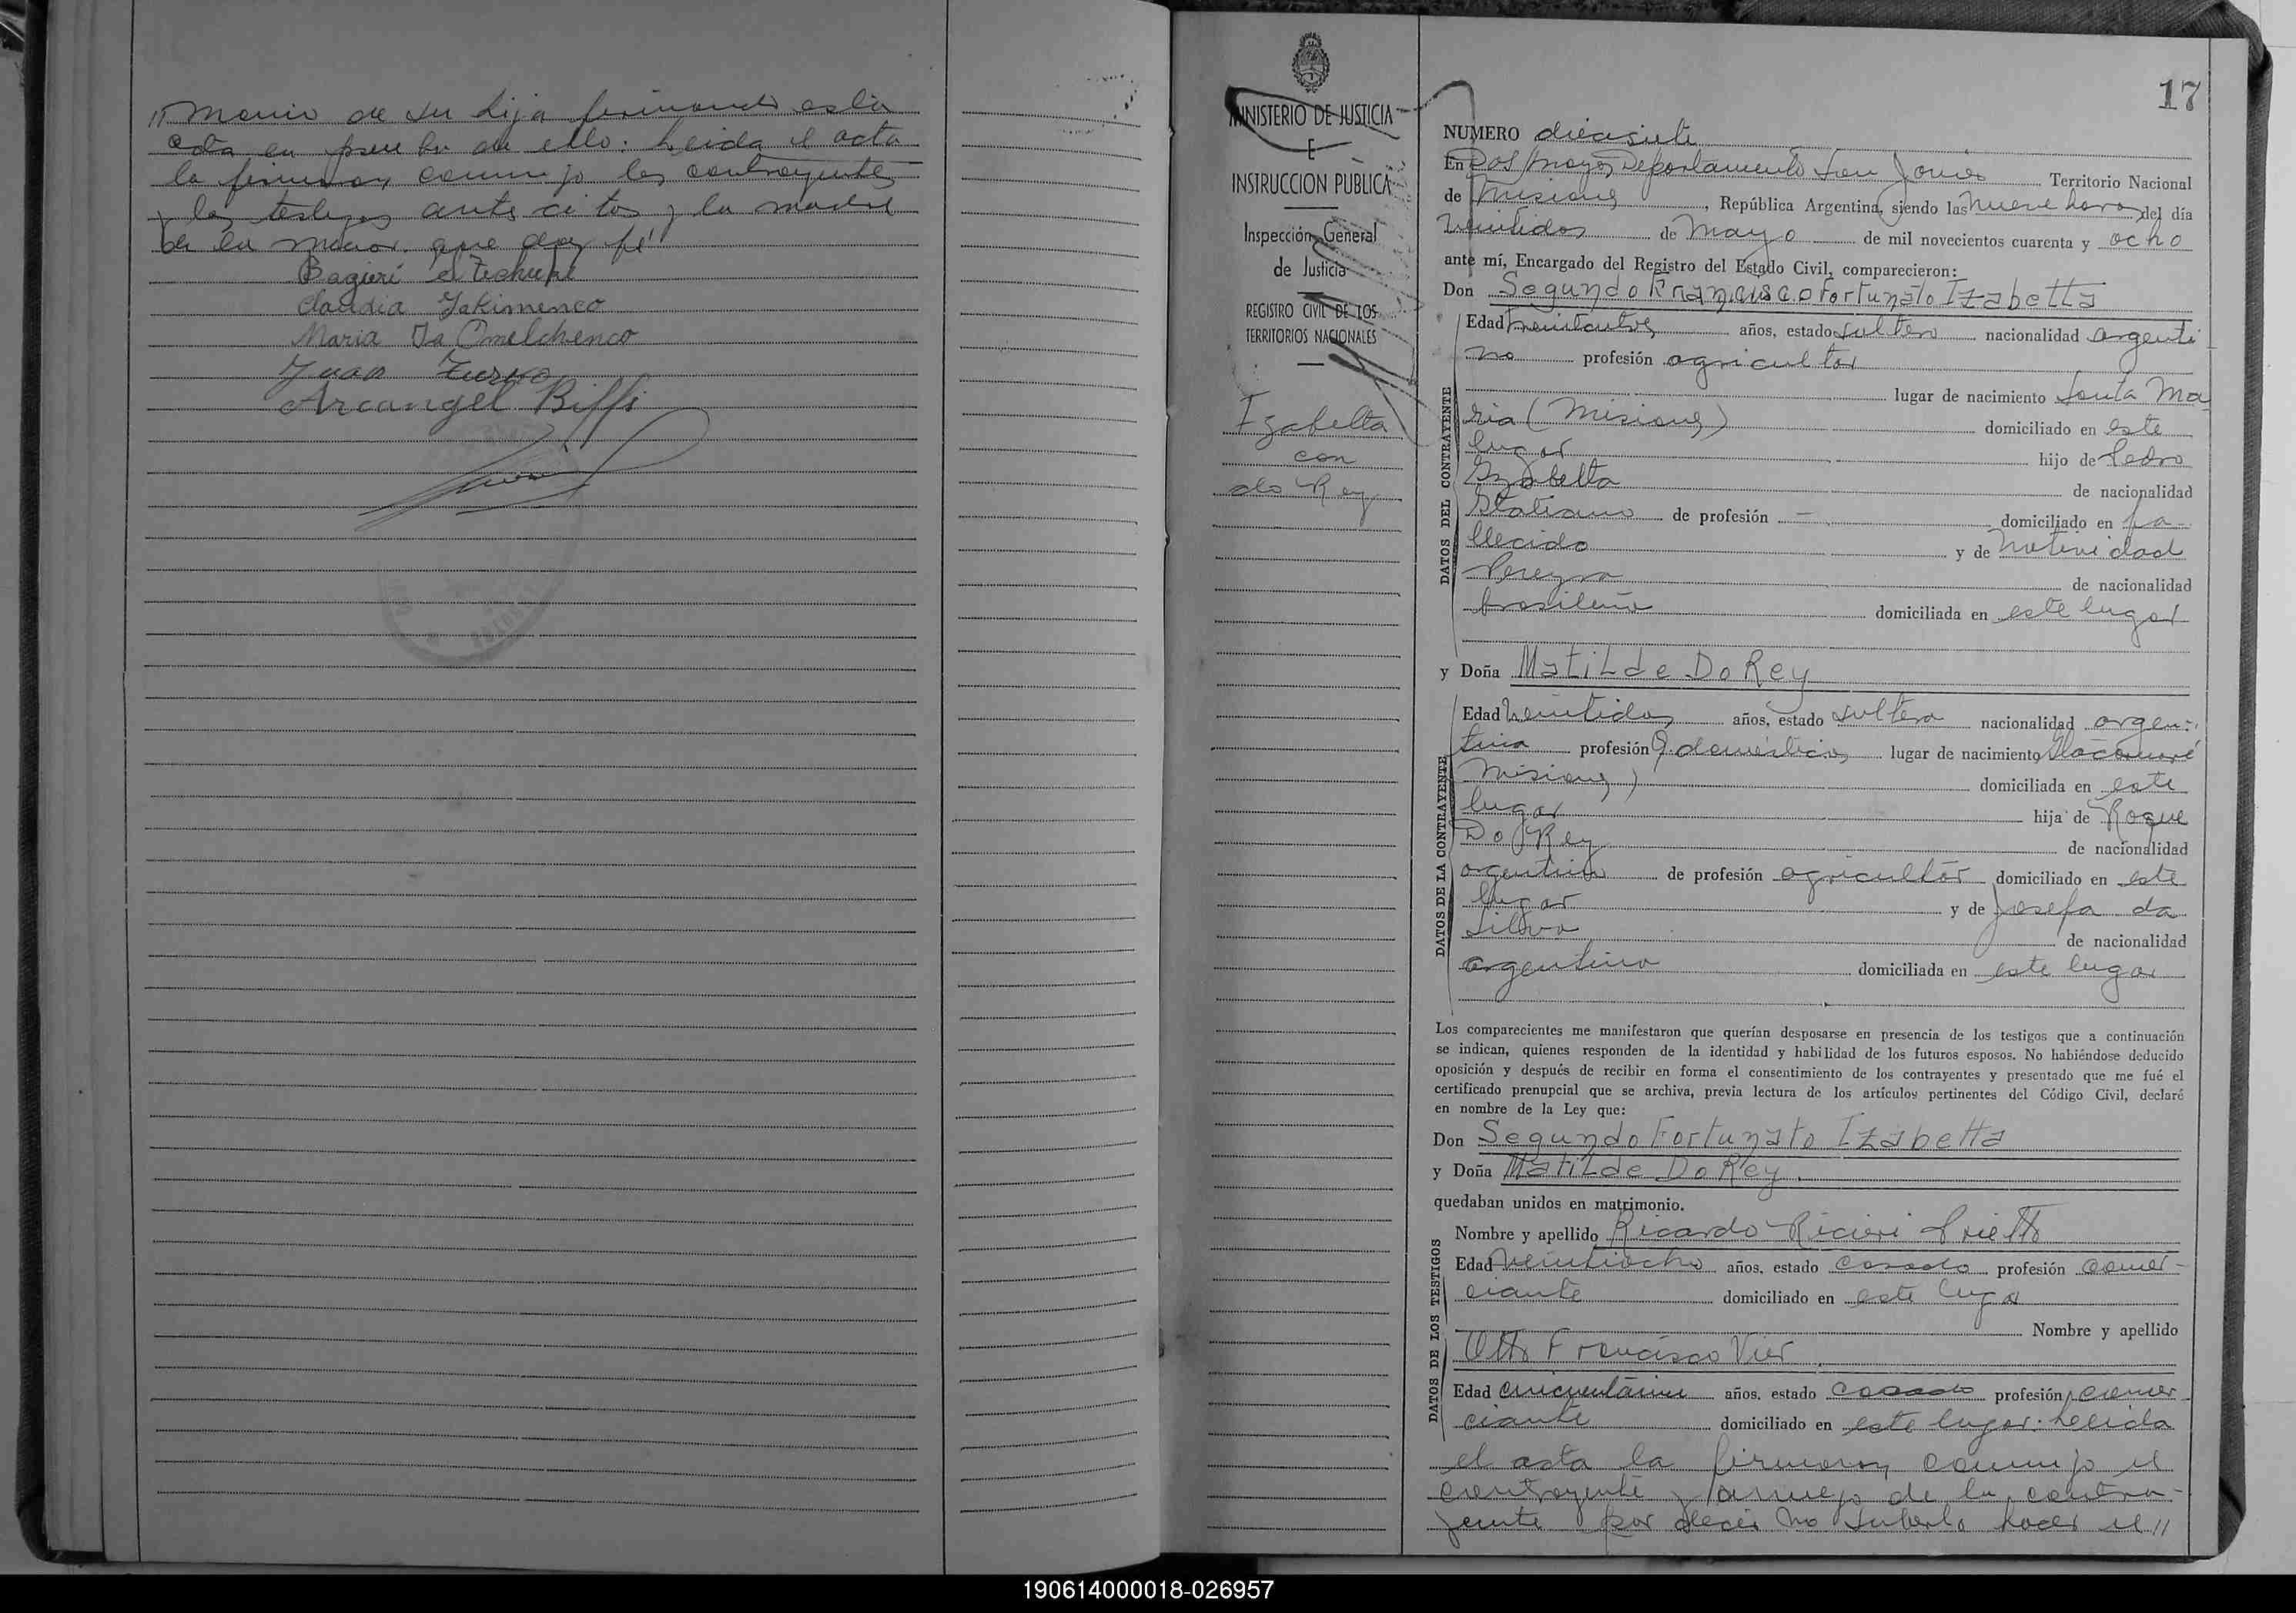 monio de su hija firmando esta
acta en prueba de ello. Leida el acta
la firmaron conmigo los contrayentes
y los testigos ante citos y la madre
de la menor, que doy fé
Claudia Jakimenco
Maria Da Omelchenco
Juan
Arcangel Biffi
MINISTERIO DE JUSTICIA
E
INSTRUCCION PÚBLICA
Inspección General
de Justicia
REGISTRO CIVIL DE LOS
TERRITORIOS NACIONALES
Izabetta
con
do Rey
17
NUMERO diecisiete
En Departamento San Javier Territorio Nacional
de Misiones, República Argentina, siendo las nueve horas del día
veintidos de Mayo de mil novecientos cuarenta y ocho
ante mí, Encargado del Registro del Estado Civil, comparecieron:
Don Segundo Francisco Fortunato Izabetta
DATOS DEL CONTRAYENTE
Edad años, estado soltero nacionalidad argenti
no profesión agricultor
lugar de nacimiento Santa Ma
ria (Misiones) domiciliado en este
lugar hijo de Pedro
Izabetta de nacionalidad
Italiano de profesión — domiciliado en fa-
llecido y de Natividad
Pereyra de nacionalidad
brasileña domiciliada en este lugar
y Doña Matilde Do Rey
DATOS DE LA CONTRAYENTE
Edad veintidos años, estado soltera nacionalidad argen-
tina profesión Q. domésticos lugar de nacimiento
Misiones) domiciliada en este
lugar hija de Roque
Do Rey de nacionalidad
argentino de profesión agricultor domiciliado en este
lugar y de Josefa da
Silva de nacionalidad
argentina domiciliada en este lugar
Los comparecientes me manifestaron que querían desposarse en presencia de los testigos que a continuación
se indican, quienes responden de la identidad y habilidad de los futuros esposos. No habiéndose deducido
oposición y después de recibir en forma el consentimiento de los contrayentes y presentado que me fué el
certificado prenupcial que se archiva, previa lectura de los artículos pertinentes del Código Civil, declaré
en nombre de la Ley que:
Don Segundo Fortunato Izabetta
y Doña Matilde Do Rey
quedaban unidos en matrimonio.
DATOS DE LOS TESTIGOS
Nombre y apellido Ricardo Ricieri
Edad veintiocho años, estado casado profesión comer-
ciante domiciliado en este lugar
Nombre y apellido
Otto Francisco Vier
Edad años, estado casado profesión comer
ciante domiciliado en este lugar. Leida
el acta la firmaron conmigo el
contrayente y a ruego de la contra-
yente por decir no saberlo hacer el //
190614000018-026957